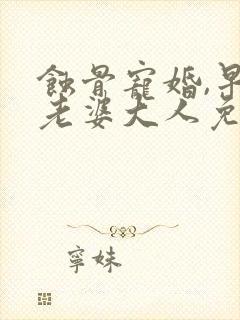 蝕骨寵婚,早
老婆大人免
寧妹